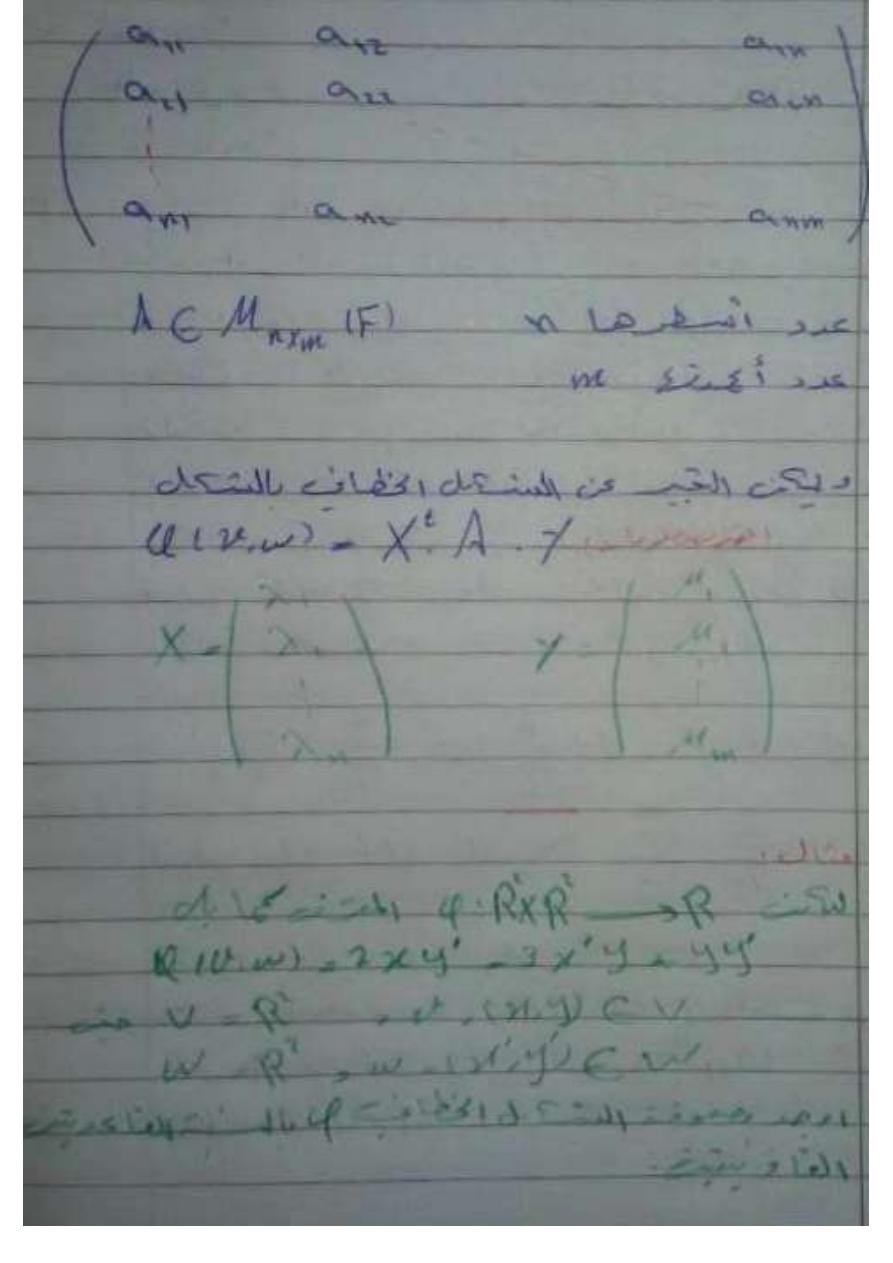 a11 a12 a1n
a21 a22 a2n
an1 an2 anm
A ∈ M n×m (F) عدد أسطرها n
عدد أعمدتها m
ويمكن التعبير عن الشكل الخطاني بالشكل
φ(v,w) = X^t . A . Y
X = ( λ1 Y = ( μ1
λ2 μ2
λn ) μm )
مثال:
لتكن φ: R²×R² → R المعرفة كما يلي
φ(v,w) = 2xy' - 3x'y + yy'
حيث V = R² , v = (x,y) ∈ V
W = R² , w = (x',y') ∈ W
اوجد مصفوفة الشكل الخطاني φ بالنسبة للقاعدتين
القانونيتين